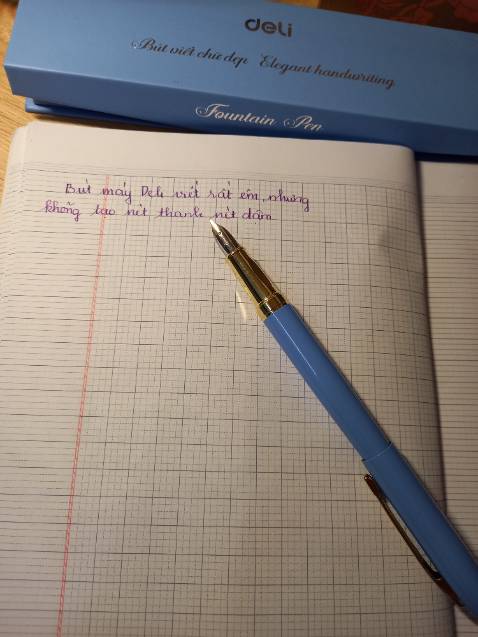 deli
Bút viết chữ đẹp Elegant handwriting
Fountain Pen
Bút máy Deli viết rất êm, nhưng
không tạo nét thanh nét đậm